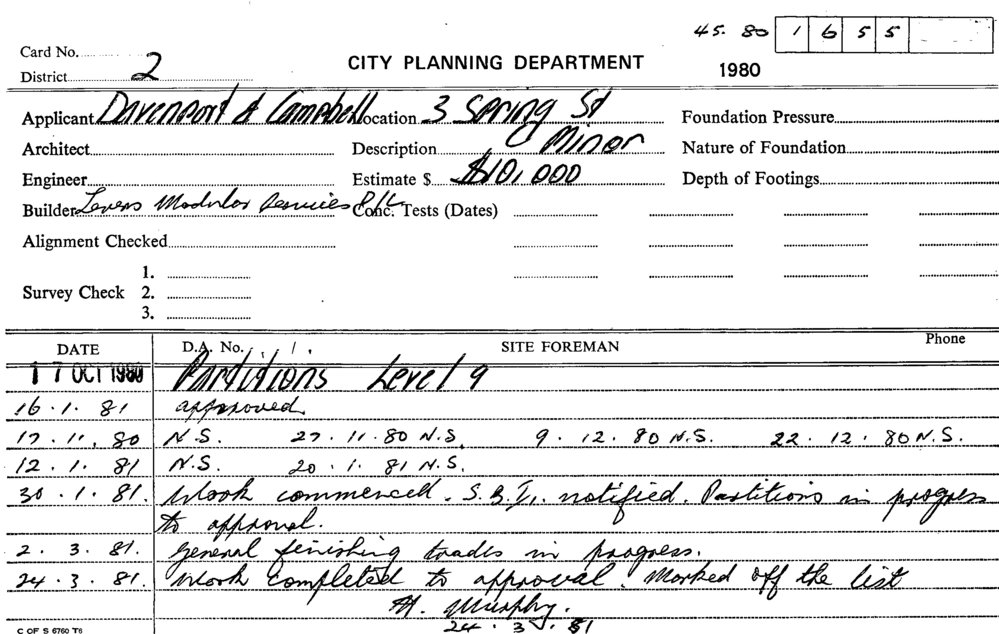 45. 80 1 6 5 5
Card No.
District 2
CITY PLANNING DEPARTMENT
1980
Applicant Davenport & Campbell Location 3 Spring St Foundation Pressure
Architect Description Minor Nature of Foundation
Engineer Estimate $ $101,000 Depth of Footings
Builder Levers Modular Services P/L Conc. Tests (Dates)
Alignment Checked
1.
Survey Check 2.
3.
DATE D.A. No. SITE FOREMAN Phone
17 OCT 1980 Partitions Level 9
16.1.81 approved.
17.11.80 N.S. 27.11.80 N.S. 9.12.80 N.S. 22.12.80 N.S.
12.1.81 N.S. 20.1.81 N.S.
30.1.81. Work commenced. S.B.I. notified. Partitions in progress
to approval.
2.3.81. General finishing trades in progress.
24.3.81. Work completed to approval. Marked off the list
Murphy.
24.3.81
C OF S 6760 T6